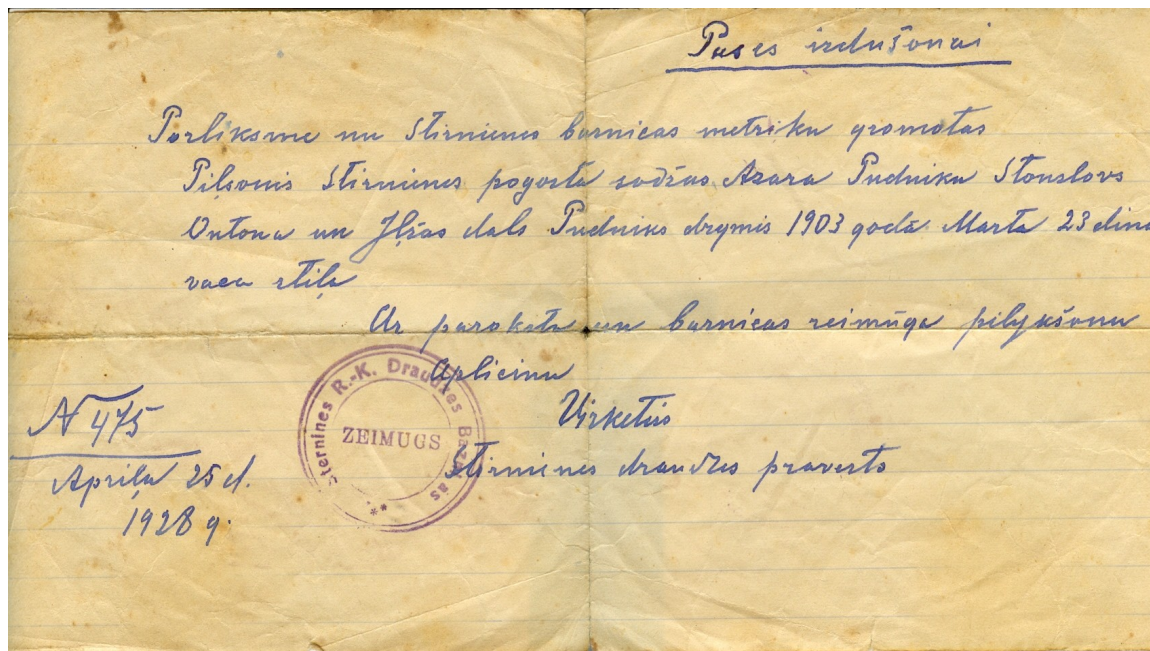 Pases izdušonai
Porliksme nu Stirnienes baznicas metriku gromotas
Piļsonis Stirnienes pogosta sodžas Azara Pudniku Stonslovs
Ontona un Iļžas dals Pudniks dzymis 1903 godā Marta 23 dinā
vaca stiļa
Ar parokstu un baznicas zeimūga pilykšonu
Aplicinu
Virketis
Stirnienes draudzes pravests
N 475
Apriļa 25 d.
1928 g.
Sternines R.-K. Draudzes Baz
ZEIMUGS